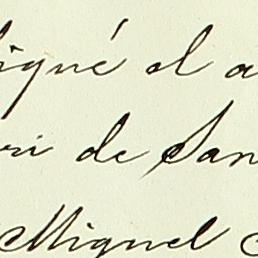 iqué el a
ri de San
Miguel